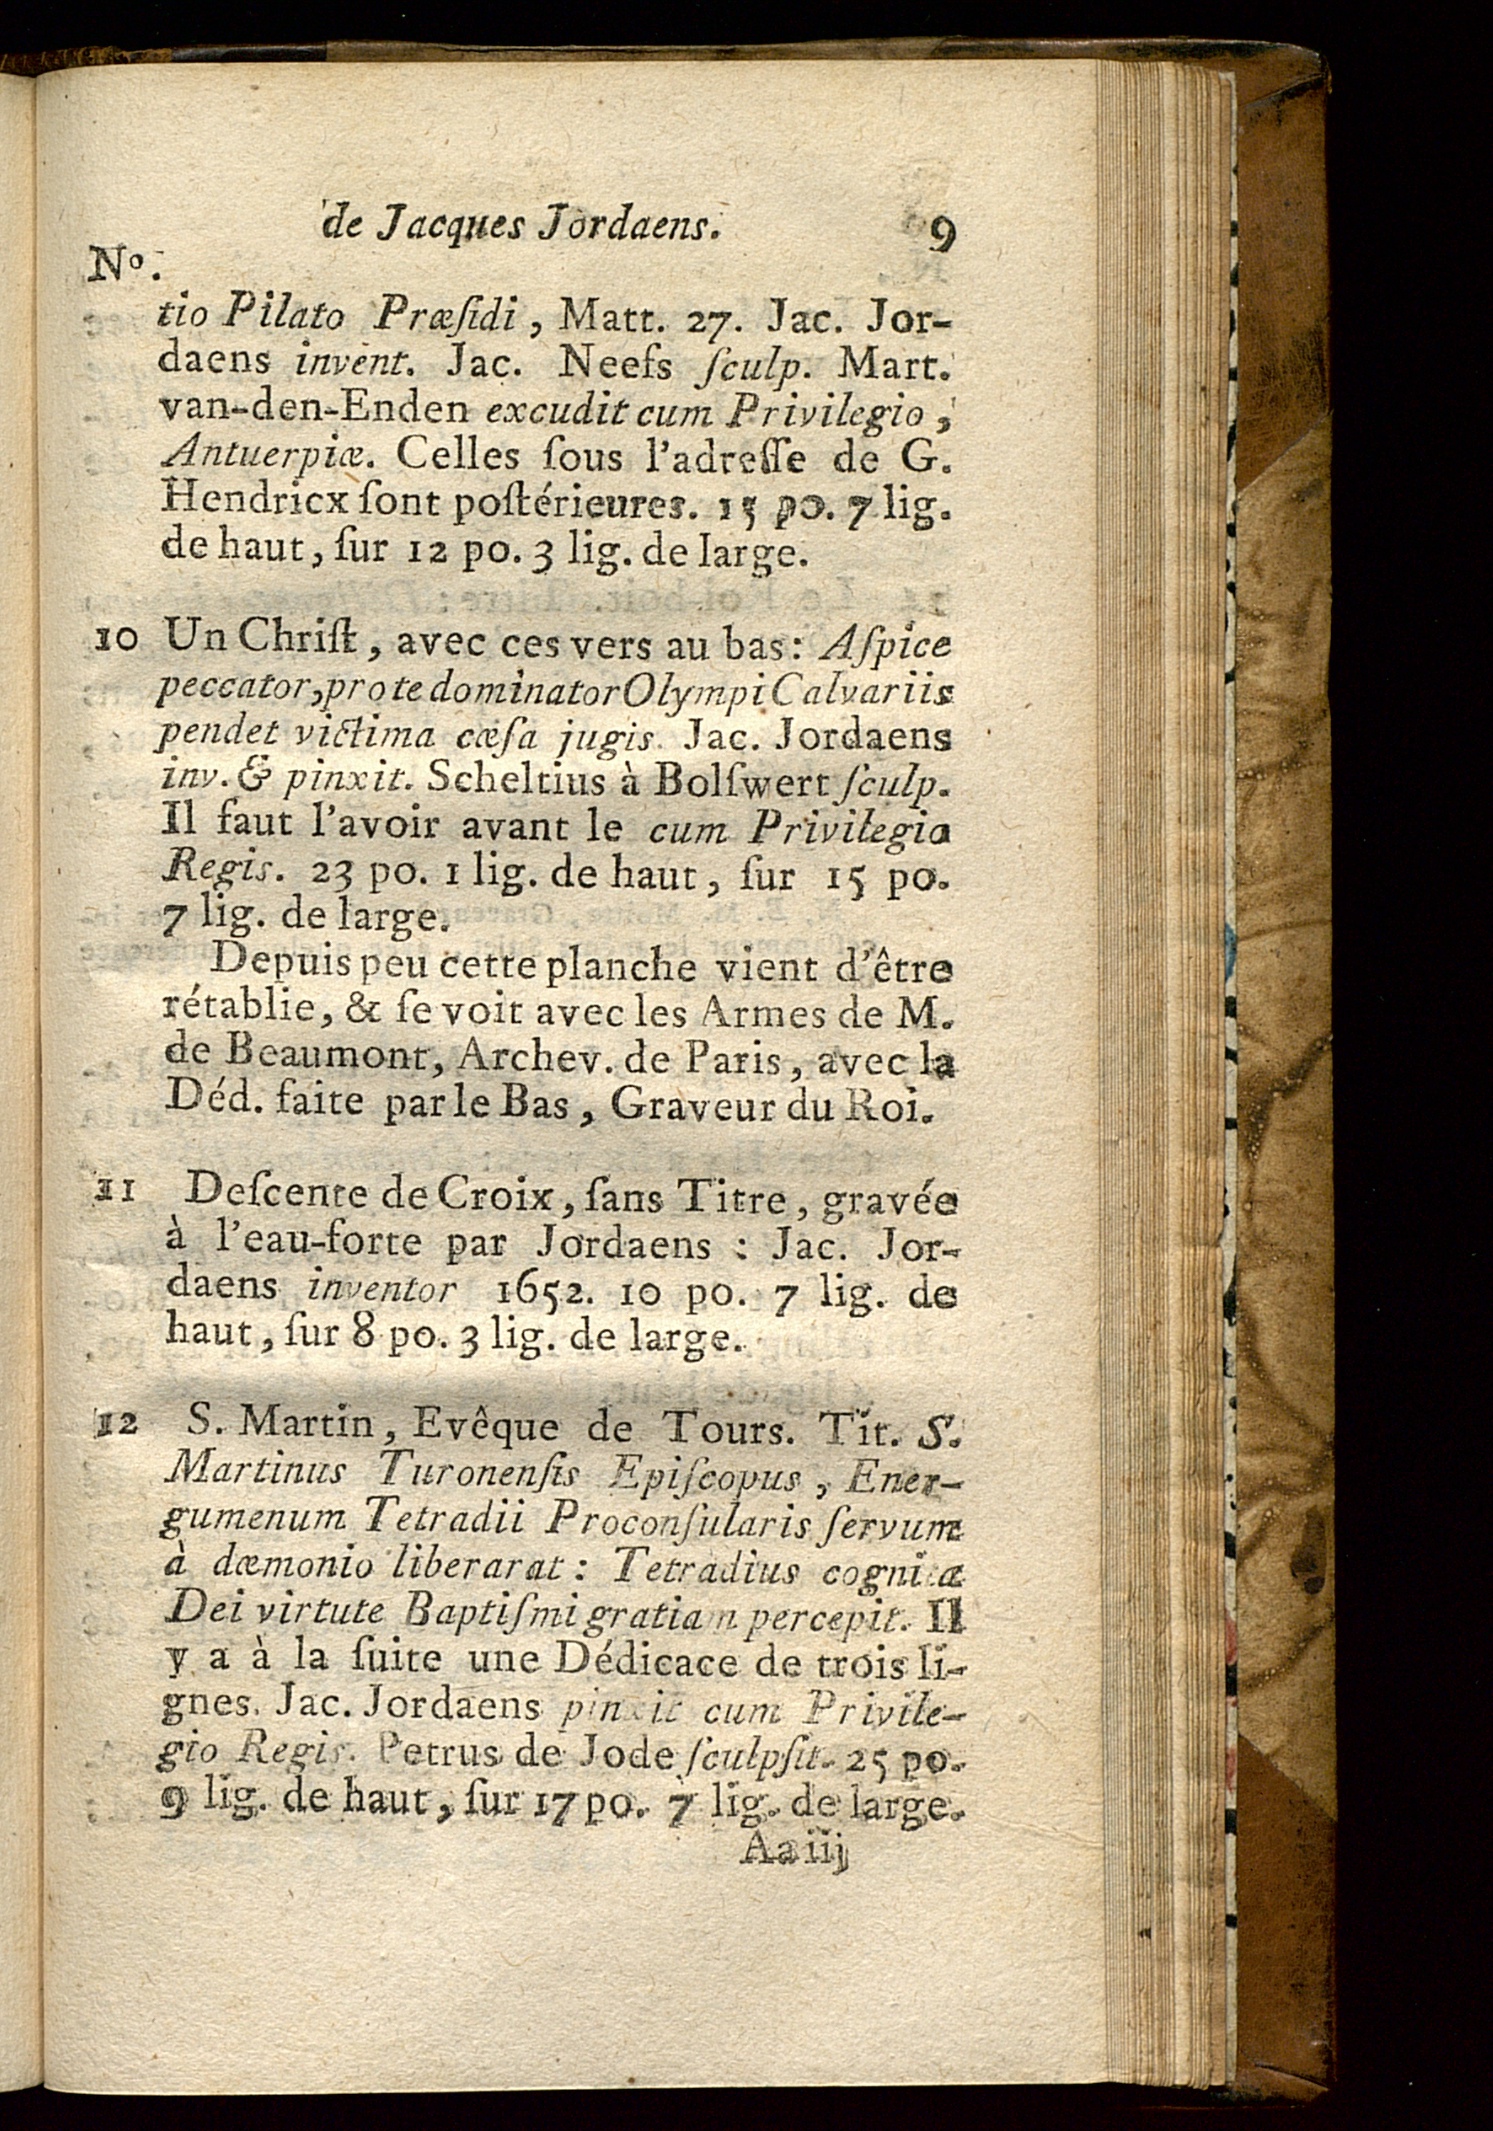 de Jacques Jordaens. 9
No.
tio Pilato Præſidi, Matt. 27. Jac. Jor-
daens invent. Jac. Neefs ſculp. Mart.
van-den-Enden excudit cum Privilegio,
Antuerpiæ. Celles ſous l'adreſſe de G.
Hendricx ſont poſtérieures. 15 po. 7 lig.
de haut, ſur 12 po. 3 lig. de large.
10 Un Chriſt, avec ces vers au bas: Aſpice
peccator, pro te dominator Olympi Calvariis
pendet victima cæſa jugis. Jac. Jordaens
inv. & pinxit. Scheltius à Bolſwert ſculp.
Il faut l'avoir avant le cum Privilegio
Regis. 23 po. 1 lig. de haut, ſur 15 po.
7 lig. de large.
Depuis peu cette planche vient d'être
rétablie, & ſe voit avec les Armes de M.
de Beaumont, Archev. de Paris, avec la
Déd. faite par le Bas, Graveur du Roi.
11 Deſcente de Croix, ſans Titre, gravée
à l'eau-forte par Jordaens : Jac. Jor-
daens inventor 1652. 10 po. 7 lig. de
haut, ſur 8 po. 3 lig. de large.
12 S. Martin, Evêque de Tours. Tit. S.
Martinus Turonenſis Epiſcopus, Ener-
gumenum Tetradii Proconſularis ſervum
à dæmonio liberarat : Tetradius cognita
Dei virtute Baptiſmi gratiam percepit. Il
y a à la ſuite une Dédicace de trois li-
gnes. Jac. Jordaens pinxit cum Privile-
gio Regis. Petrus de Jode ſculpſit. 25 po.
9 lig. de haut, ſur 17 po. 7 lig. de large.
Aa iij